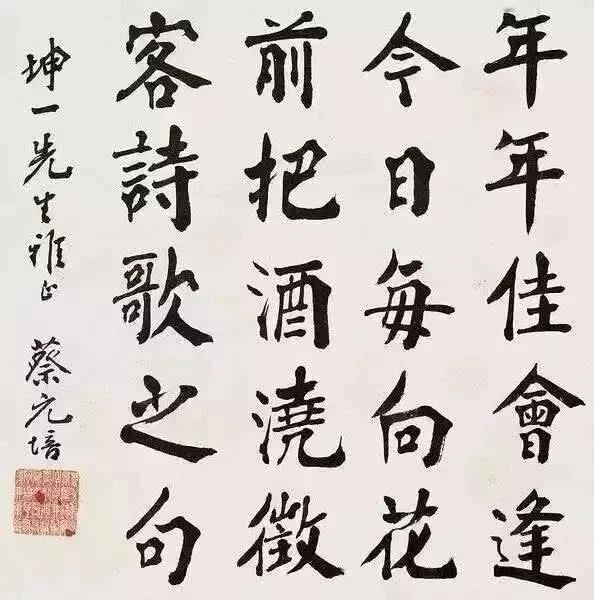 年年佳會逢
今日每向花
前把酒澆徵
客詩歌之句
坤一先生雅正
蔡元培